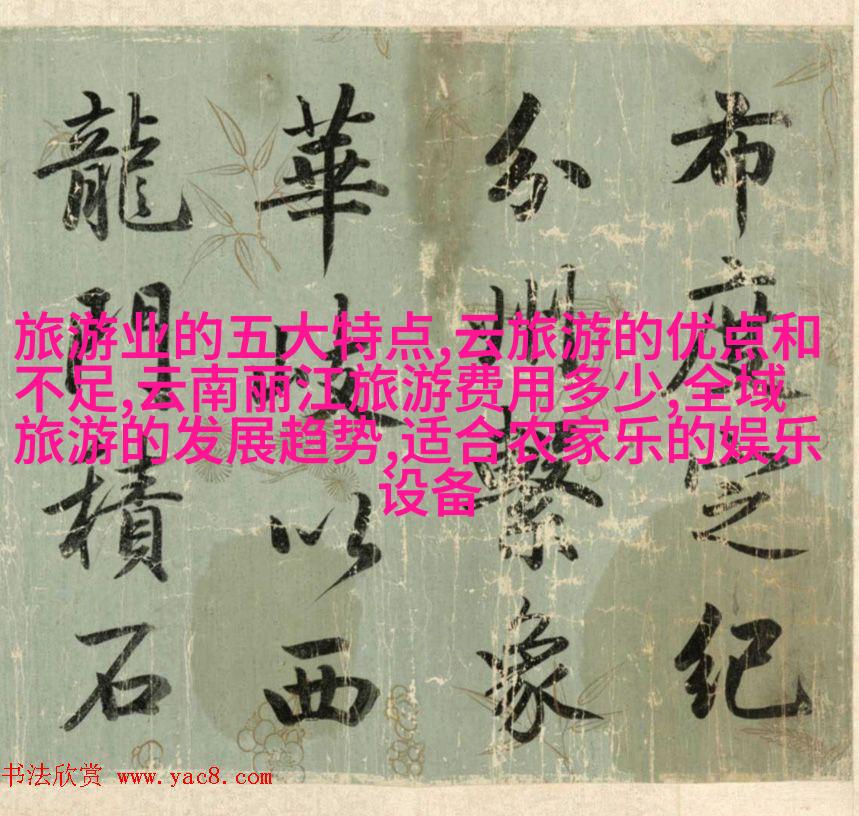 布度定紀
分州繫象
華岐以西
龍門積石
旅游业的五大特点,云旅游的优点和
不足,云南丽江旅游费用多少,全域
旅游的发展趋势,适合农家乐的娱乐
设备
书法欣赏 www.yac8.com